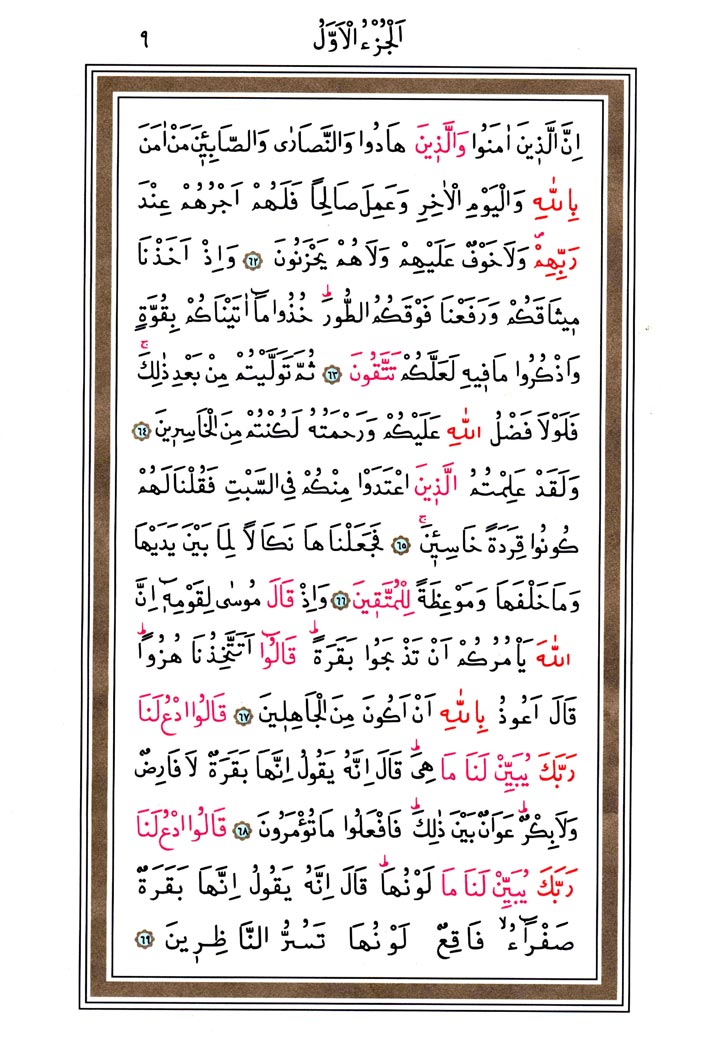 اَلْجُزْءُ الْاَوَّلُ ٩
اِنَّ الَّذٖينَ اٰمَنُوا وَالَّذٖينَ هَادُوا وَالنَّصَارٰى وَالصَّابِـٖٔينَ مَنْ اٰمَنَ
بِاللّٰهِ وَالْيَوْمِ الْاٰخِرِ وَعَمِلَ صَالِحًا فَلَهُمْ اَجْرُهُمْ عِنْدَ
رَبِّهِمْۙ وَلَا خَوْفٌ عَلَيْهِمْ وَلَا هُمْ يَحْزَنُونَ ﴿٦٢﴾ وَاِذْ اَخَذْنَا
مٖيثَاقَكُمْ وَرَفَعْنَا فَوْقَكُمُ الطُّورَؕ خُذُوا مَٓا اٰتَيْنَاكُمْ بِقُوَّةٍ
وَاذْكُرُوا مَا فٖيهِ لَعَلَّكُمْ تَتَّقُونَ ﴿٦٣﴾ ثُمَّ تَوَلَّيْتُمْ مِنْ بَعْدِ ذٰلِكَۚ
فَلَوْلَا فَضْلُ اللّٰهِ عَلَيْكُمْ وَرَحْمَتُهُ لَكُنْتُمْ مِنَ الْخَاسِرٖينَ ﴿٦٤﴾
وَلَقَدْ عَلِمْتُمُ الَّذٖينَ اعْتَدَوْا مِنْكُمْ فِى السَّبْتِ فَقُلْنَا لَهُمْ
كُونُوا قِرَدَةً خَاسِـٖٔينَۚ ﴿٦٥﴾ فَجَعَلْنَاهَا نَكَالًا لِمَا بَيْنَ يَدَيْهَا
وَمَا خَلْفَهَا وَمَوْعِظَةً لِلْمُتَّقٖينَ ﴿٦٦﴾ وَاِذْ قَالَ مُوسٰى لِقَوْمِهٖٓ اِنَّ
اللّٰهَ يَاْمُرُكُمْ اَنْ تَذْبَحُوا بَقَرَةًؕ قَالُٓوا اَتَتَّخِذُنَا هُزُوًاؕ
قَالَ اَعُوذُ بِاللّٰهِ اَنْ اَكُونَ مِنَ الْجَاهِلٖينَ ﴿٦٧﴾ قَالُوا ادْعُ لَنَا
رَبَّكَ يُبَيِّنْ لَنَا مَا هِىَؕ قَالَ اِنَّهُ يَقُولُ اِنَّهَا بَقَرَةٌ لَا فَارِضٌ
وَلَا بِكْرٌؕ عَوَانٌ بَيْنَ ذٰلِكَؕ فَافْعَلُوا مَا تُؤْمَرُونَ ﴿٦٨﴾ قَالُوا ادْعُ لَنَا
رَبَّكَ يُبَيِّنْ لَنَا مَا لَوْنُهَاؕ قَالَ اِنَّهُ يَقُولُ اِنَّهَا بَقَرَةٌ
صَفْرَٓاءُۙ فَاقِعٌ لَوْنُهَا تَسُرُّ النَّاظِرٖينَ ﴿٦٩﴾